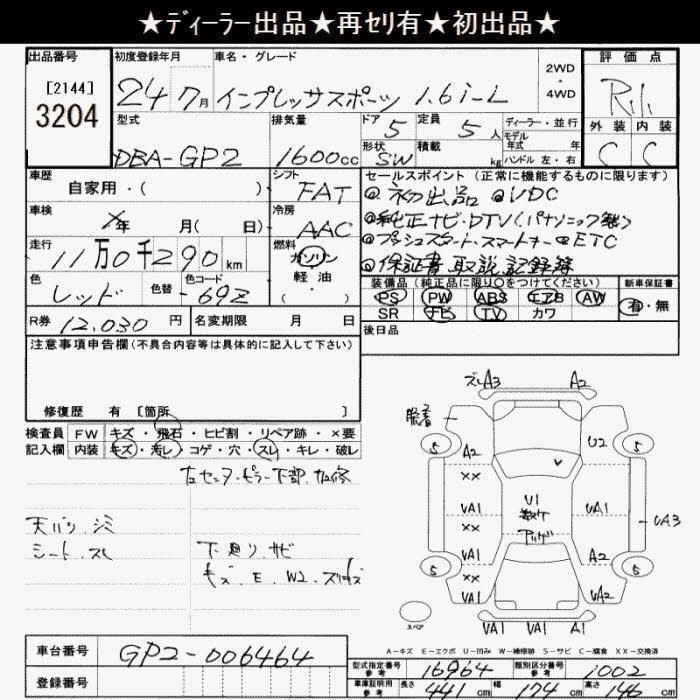 ★ディーラー出品★再セリ有★初出品★
出品番号 初度登録年月 車名・グレード 2WD・4WD 評価点
[2144]
3204
24 7月 インプレッサスポーツ 1.6i-L
型式 排気量 ドア 5 定員 5人 ディーラー・並行 外装 内装
DBA-GP2 1600cc 形状 SW 積載 kg モデル年式 年 ハンドル 左・右 C C
車歴 シフト セールスポイント (正常に機能するものに限ります)
自家用・( ) FAT ◎初出品 ◎VDC
車検 冷房 ◎純正ナビ・DTV(パナソニック製)
年 月( 日) AAC ◎プッシュスタート・スマートキー ◎ETC
走行 燃料 ◎保証書 取説 記録簿
11万0千290km ガソリン
軽・油
( )
色 色替 色コード 装備品 (純正品に限り○をつけてください) 新車保証書
レッド -69Z PS PW ABS エアB AW 有・無
SR ナビ TV カワ
R券 12,030円 名変期限 月 日 後日品
注意事項申告欄(不具合内容等は具体的に記入して下さい)
修復歴 有 [箇所 ]
検査員 FW キズ・飛石・ヒビ割・リペア跡・×要
記入欄 内装 キズ・汚レ・コゲ・穴・スレ・キレ・破レ
右センターピラー下部 加修
天バリ シミ
シート スレ
下廻り サビ
キズ・E・W2・
ズレA3 A2
5 5
A2 U2
XX
UA1 U1 UA1
XX UA3
UA1 A2
XX
5 5
UA1 UA2
スペア
UA1 UA1 A1
A-キズ E-エクボ U-凹み W-補修跡 S-サビ C-腐食 XX-交換済
車台番号 GP2-006464
型式指定番号 参考 16964 類別区分番号 参考 1002
登録番号
車庫証明用 参考 長さ 441cm 幅 174cm 高さ 146cm